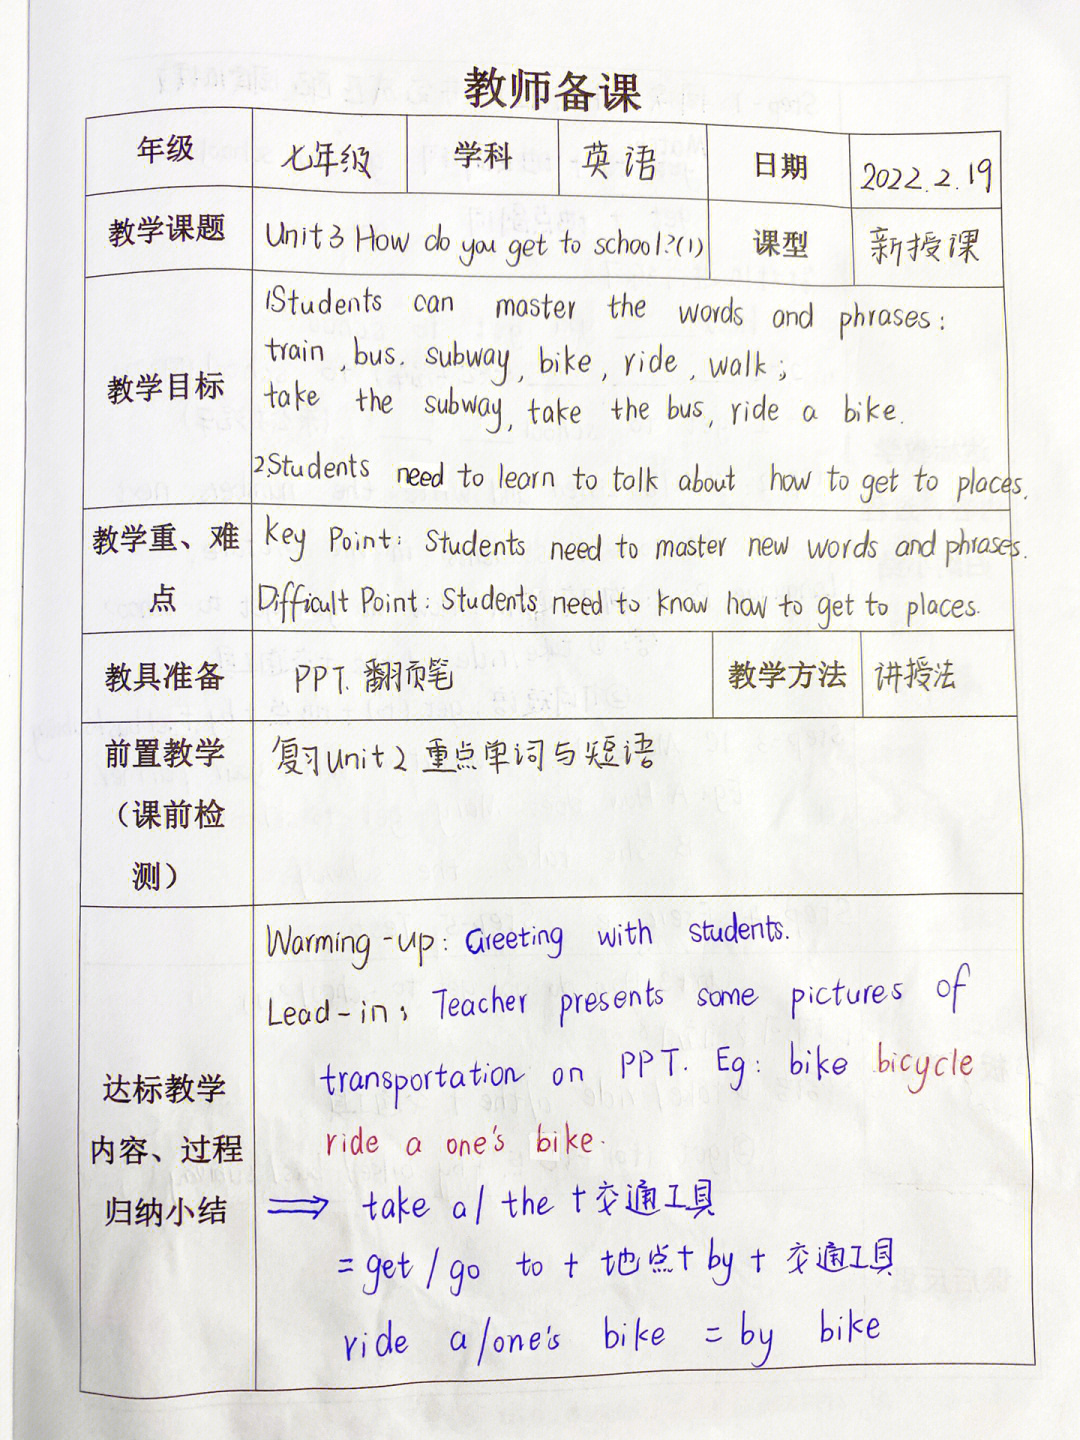 教师备课
年级 七年级 学科 英语 日期 2022.2.19
教学课题 Unit 3 How do you get to school?(1) 课型 新授课
教学目标
1Students can master the words and phrases:
train, bus. subway, bike, ride, walk;
take the subway, take the bus, ride a bike.
2.Students need to learn to talk about how to get to places.
教学重、难点
Key Point: Students need to master new words and phrases.
Difficult Point: Students need to know how to get to places.
教具准备 PPT. 翻页笔 教学方法 讲授法
前置教学
（课前检
测）
复习Unit 2 重点单词与短语
达标教学
内容、过程
归纳小结
Warming-up: Greeting with students.
Lead-in; Teacher presents some pictures of
transportation on PPT. Eg: bike bicycle
ride a one's bike.
⟹ take a/ the +交通工具
= get / go to + 地点+ by + 交通工具
ride a/one's bike = by bike